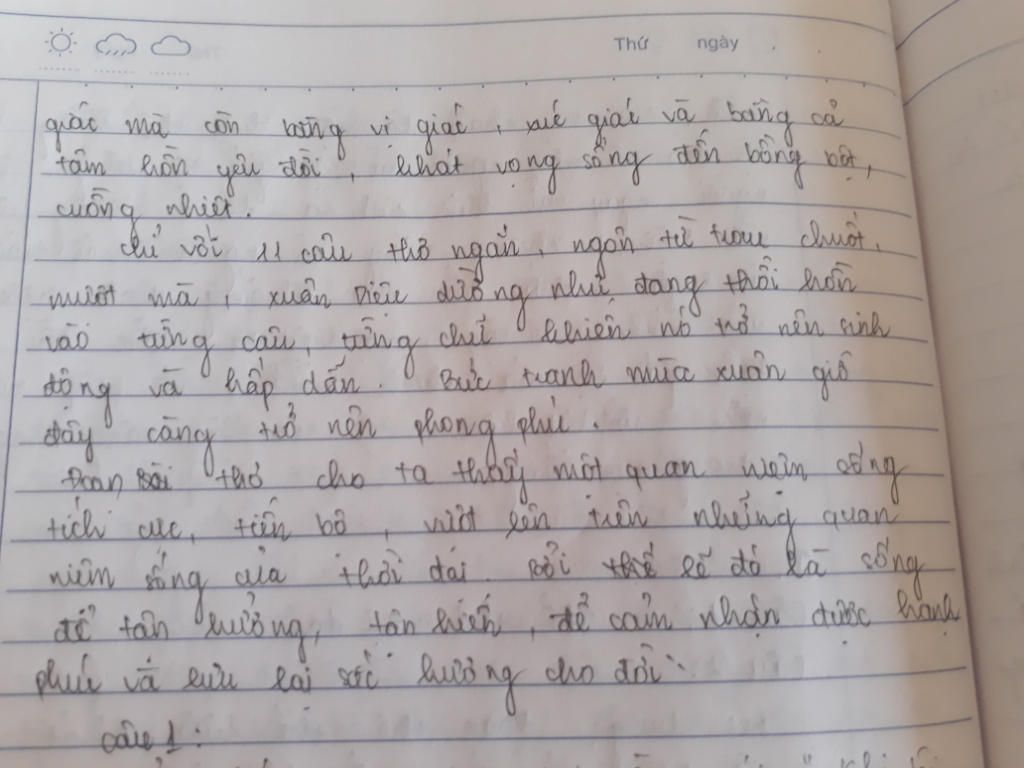 Thứ ngày
giác mà còn bằng vị giác, xúc giác và bằng cả
tâm hồn yêu đời, khát vọng sống đến bồng bột,
cuồng nhiệt.
Chỉ với 11 câu thơ ngắn, ngôn từ trau chuốt,
mượt mà, Xuân Diệu dường như đang thổi hồn
vào từng câu, từng chữ khiến nó trở nên sinh
động và hấp dẫn. Bức tranh mùa xuân giờ
đây càng trở nên phong phú.
Đoạn bài thơ cho ta thấy một quan niệm sống
tích cực, tiến bộ, vượt lên trên những quan
niệm sống của thời đại. Bởi thế lẽ đó là sống
để tận hưởng, tận hiến, để cảm nhận được hạnh
phúc và lưu lại sắc hương cho đời.
Câu 1: